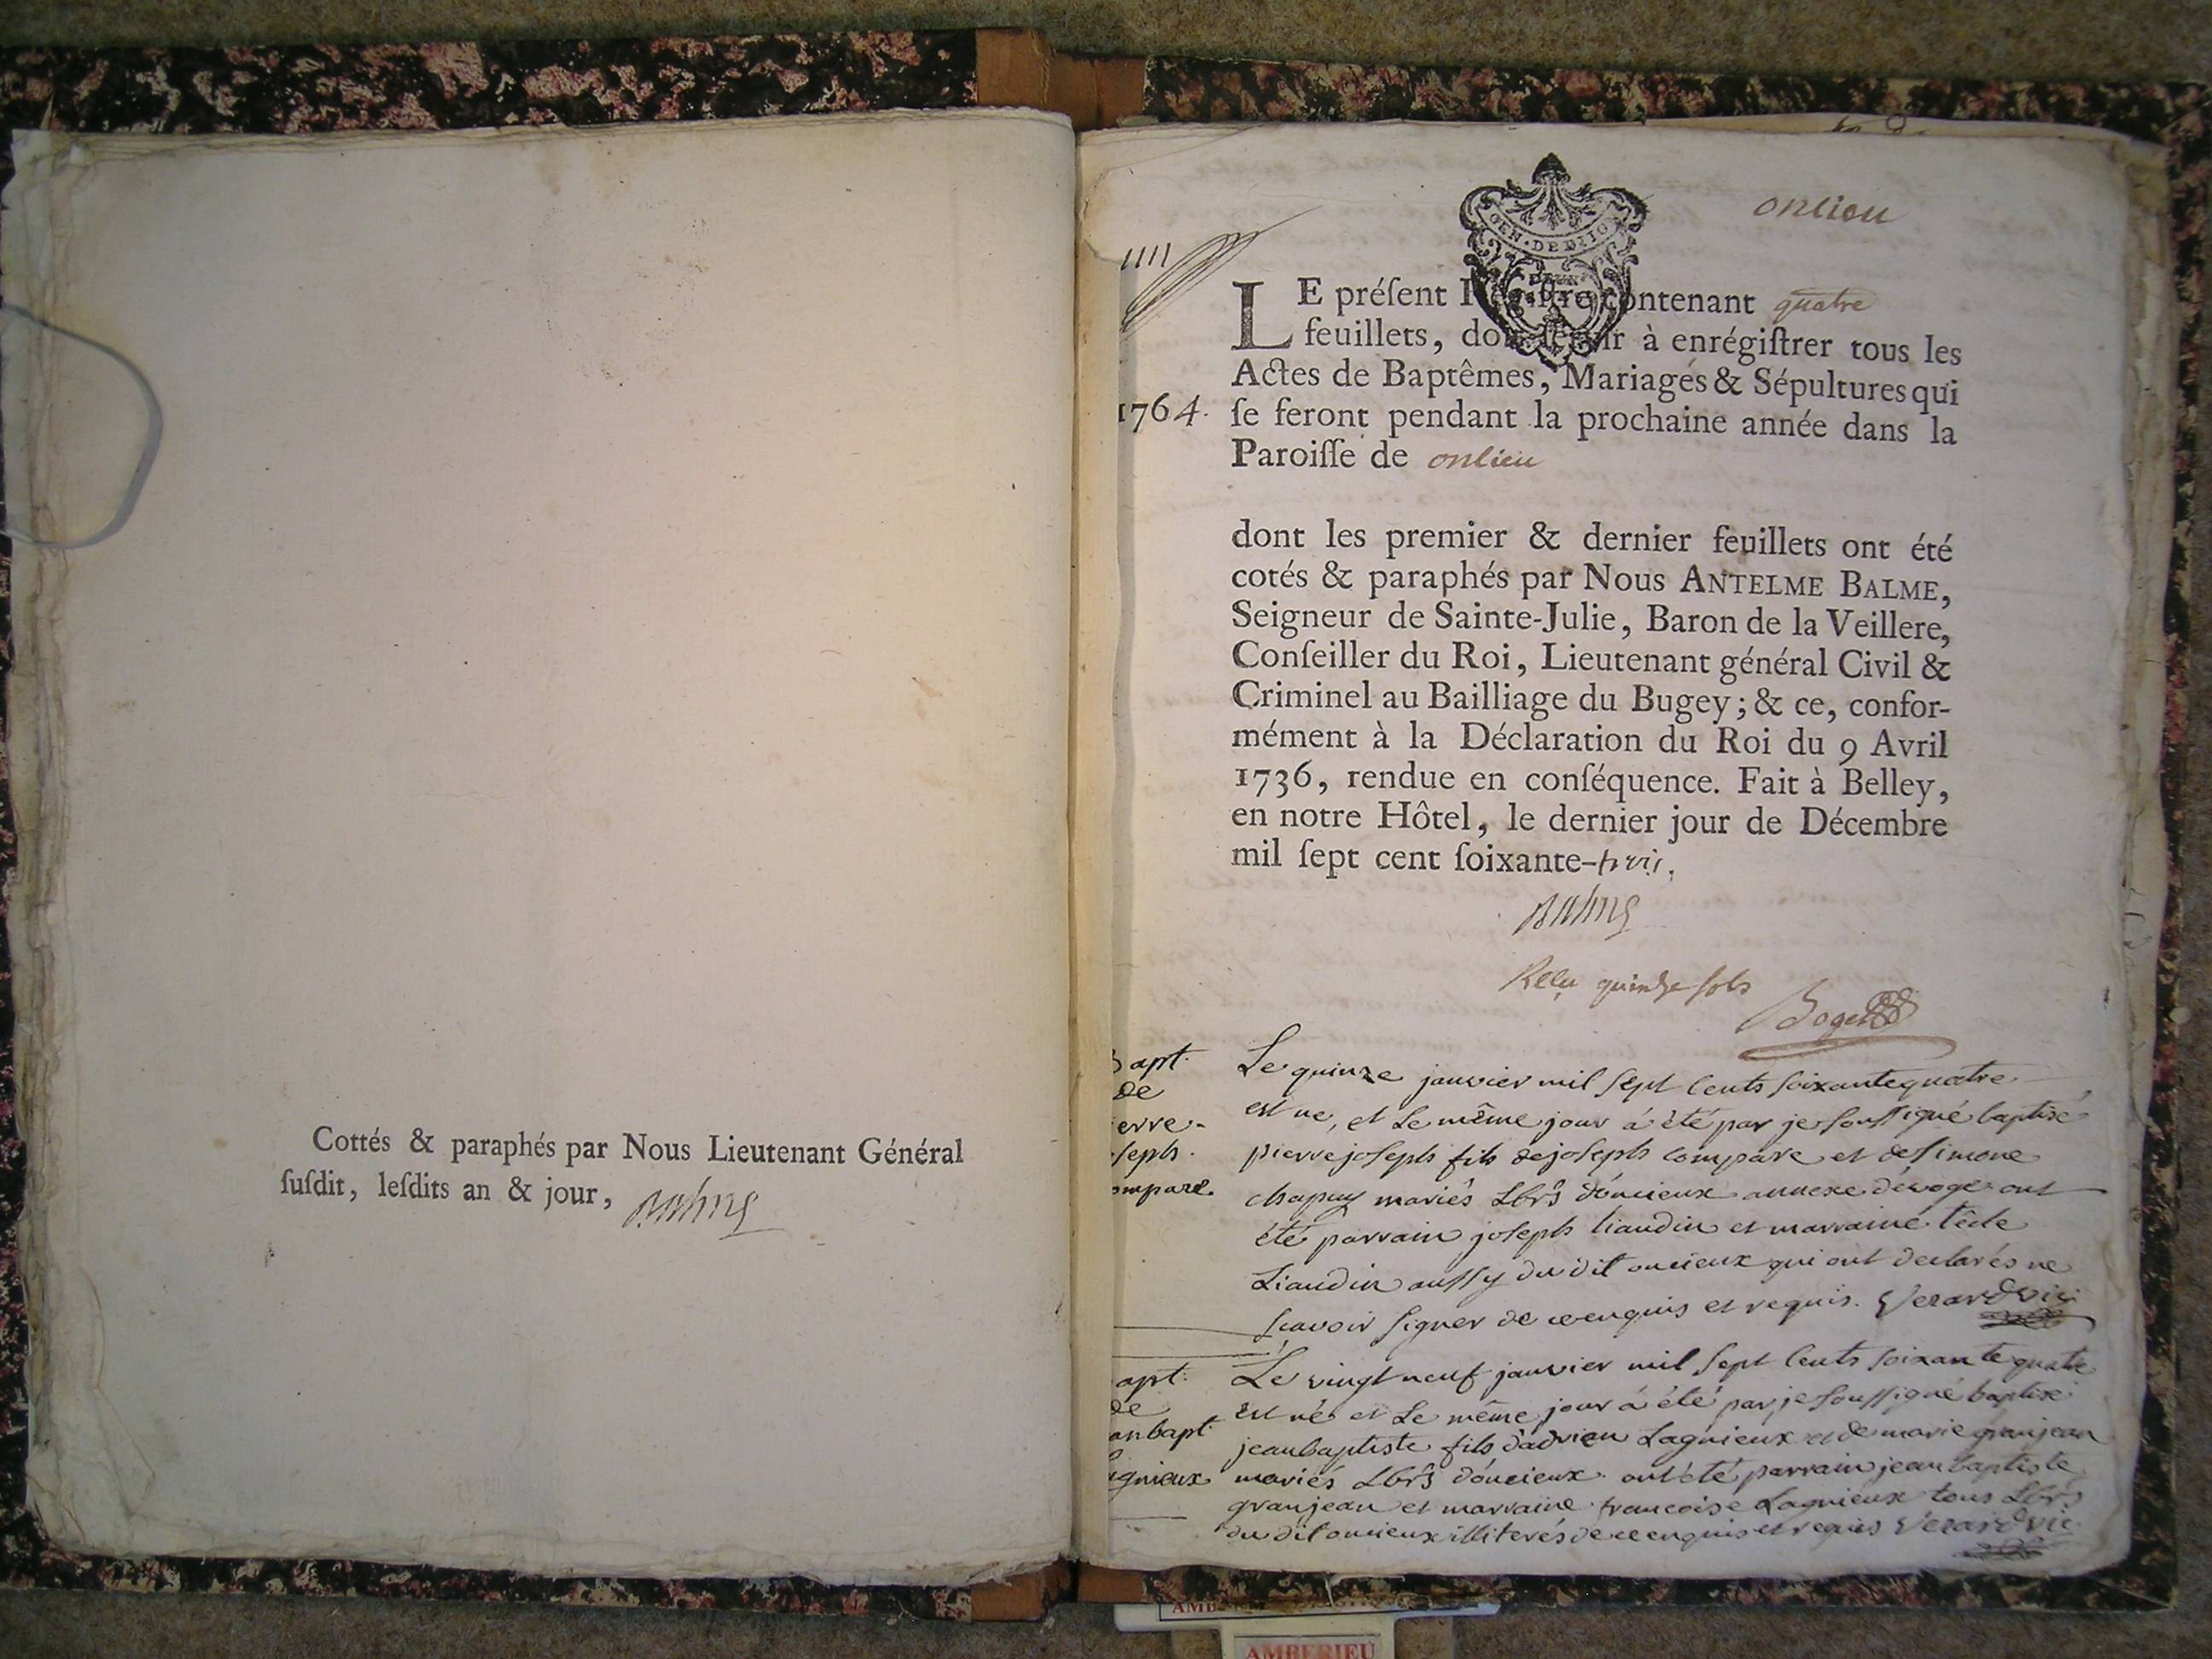 Cottés & paraphés par Nous Lieutenant Général
ſuſdit, leſdits an & jour, Balme
onlieu
GEN · DE DIJO
1111
LE préſent Regiſtre contenant quatre
feuillets, doit ſervir à enrégiſtrer tous les
Actes de Baptêmes, Mariages & Sépultures qui
1764. ſe feront pendant la prochaine année dans la
Paroiſſe de onlieu
dont les premier & dernier feuillets ont été
cotés & paraphés par Nous ANTELME BALME,
Seigneur de Sainte-Julie, Baron de la Veillere,
Conſeiller du Roi, Lieutenant général Civil &
Criminel au Bailliage du Bugey; & ce, confor-
mément à la Déclaration du Roi du 9 Avril
1736, rendue en conſéquence. Fait à Belley,
en notre Hôtel, le dernier jour de Décembre
mil ſept cent ſoixante-trois.
Balme
Reçu quinze sols
Boget
Bapt.
de
erre-
seph.
ompare.
Le quinze janvier mil sept cents soixante quatre
est ne, et le même jour á été par je soussigné baptisé
pierre joseph fils de joseph compare et de simone
chapuy mariés Lbrs d'oncieux annexe d'evoge ont
été parrain joseph liaudin et marraine técle
Liaudin aussy du dit oncieux qui ont declarés ne
scavoir signer de ce enquis et requis. Verard vic
apt.
de
an bapt.
agnieux
Le vingt neuf janvier mil sept cents soixante quatre
est né et le même jour á été par je soussigné baptisé
jean baptiste fils d'adrien Lagnieux et de marie granjean
mariés Lbrs d'oncieux. ont été parrain jean baptiste
granjean et marraine francoise Lagnieux tous Lbrs
du dit oncieux illiterés de ce enquis et requis Verard vic.
AMBERIEU